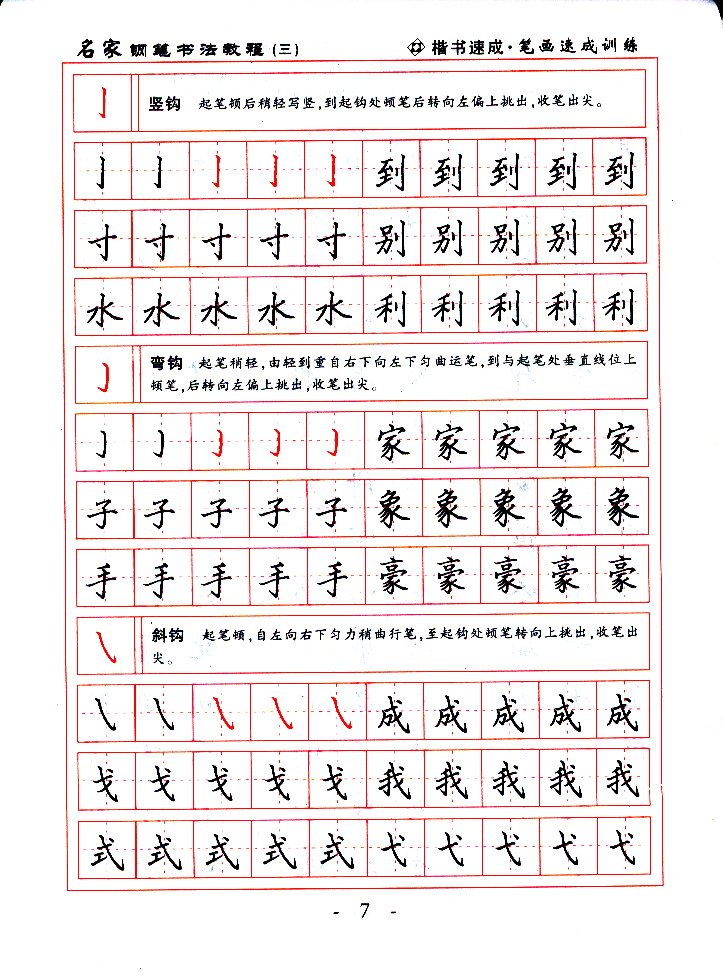 名家钢笔书法教程(三) 楷书速成·笔画速成训练
亅 竖钩 起笔顿后稍轻写竖,到起钩处顿笔后转向左偏上挑出,收笔出尖。
亅 亅 亅 亅 亅 到 到 到 到 到
寸 寸 寸 寸 寸 别 别 别 别 别
水 水 水 水 水 利 利 利 利 利
㇁ 弯钩 起笔稍轻,由轻到重自右下向左下匀曲运笔,到与起笔处垂直线位上
顿笔,后转向左偏上挑出,收笔出尖。
㇁ ㇁ ㇁ ㇁ ㇁ 家 家 家 家 家
子 子 子 子 子 象 象 象 象 象
手 手 手 手 手 豪 豪 豪 豪 豪
㇂ 斜钩 起笔顿,自左向右下匀力稍曲行笔,至起钩处顿笔转向上挑出,收笔出
尖。
㇂ ㇂ ㇂ ㇂ ㇂ 成 成 成 成 成
戈 戈 戈 戈 戈 我 我 我 我 我
式 式 式 式 式 弋 弋 弋 弋 弋
- 7 -